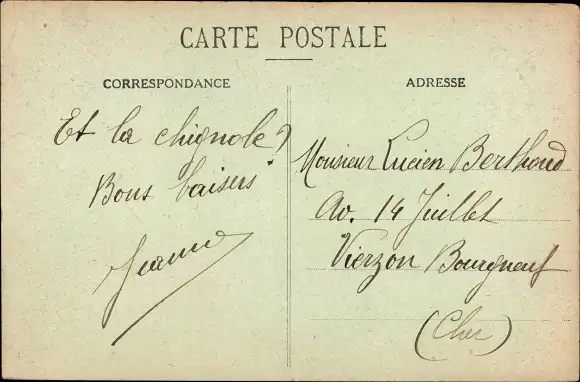 CARTE POSTALE
CORRESPONDANCE
ADRESSE
Et la chignole?
Bons baisers
Jeanne
Monsieur Lucien Berthoud
Av. 14 Juillet
Vierzon Bourgneuf
(Cher)